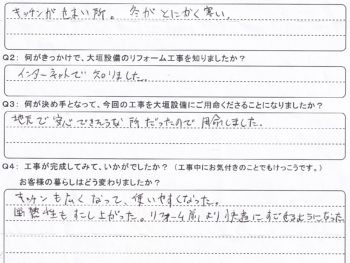 キッチンがせまい所。冬がとにかく寒い。
Q2：何がきっかけで、大垣設備のリフォーム工事を知りましたか？
インターネットで知りました。
Q3：何が決め手となって、今回の工事を大垣設備にご用命くださることになりましたか？
地元で安心できそうな所だったので用命しました。
Q4：工事が完成してみて、いかがでしたか？（工事中にお気付きのことでもけっこうです。）
お客様の暮らしはどう変わりましたか？
キッチンも広くなって、使いやすくなった。
断熱性もすこし上がった。リフォーム前より快適にすごせるようになった